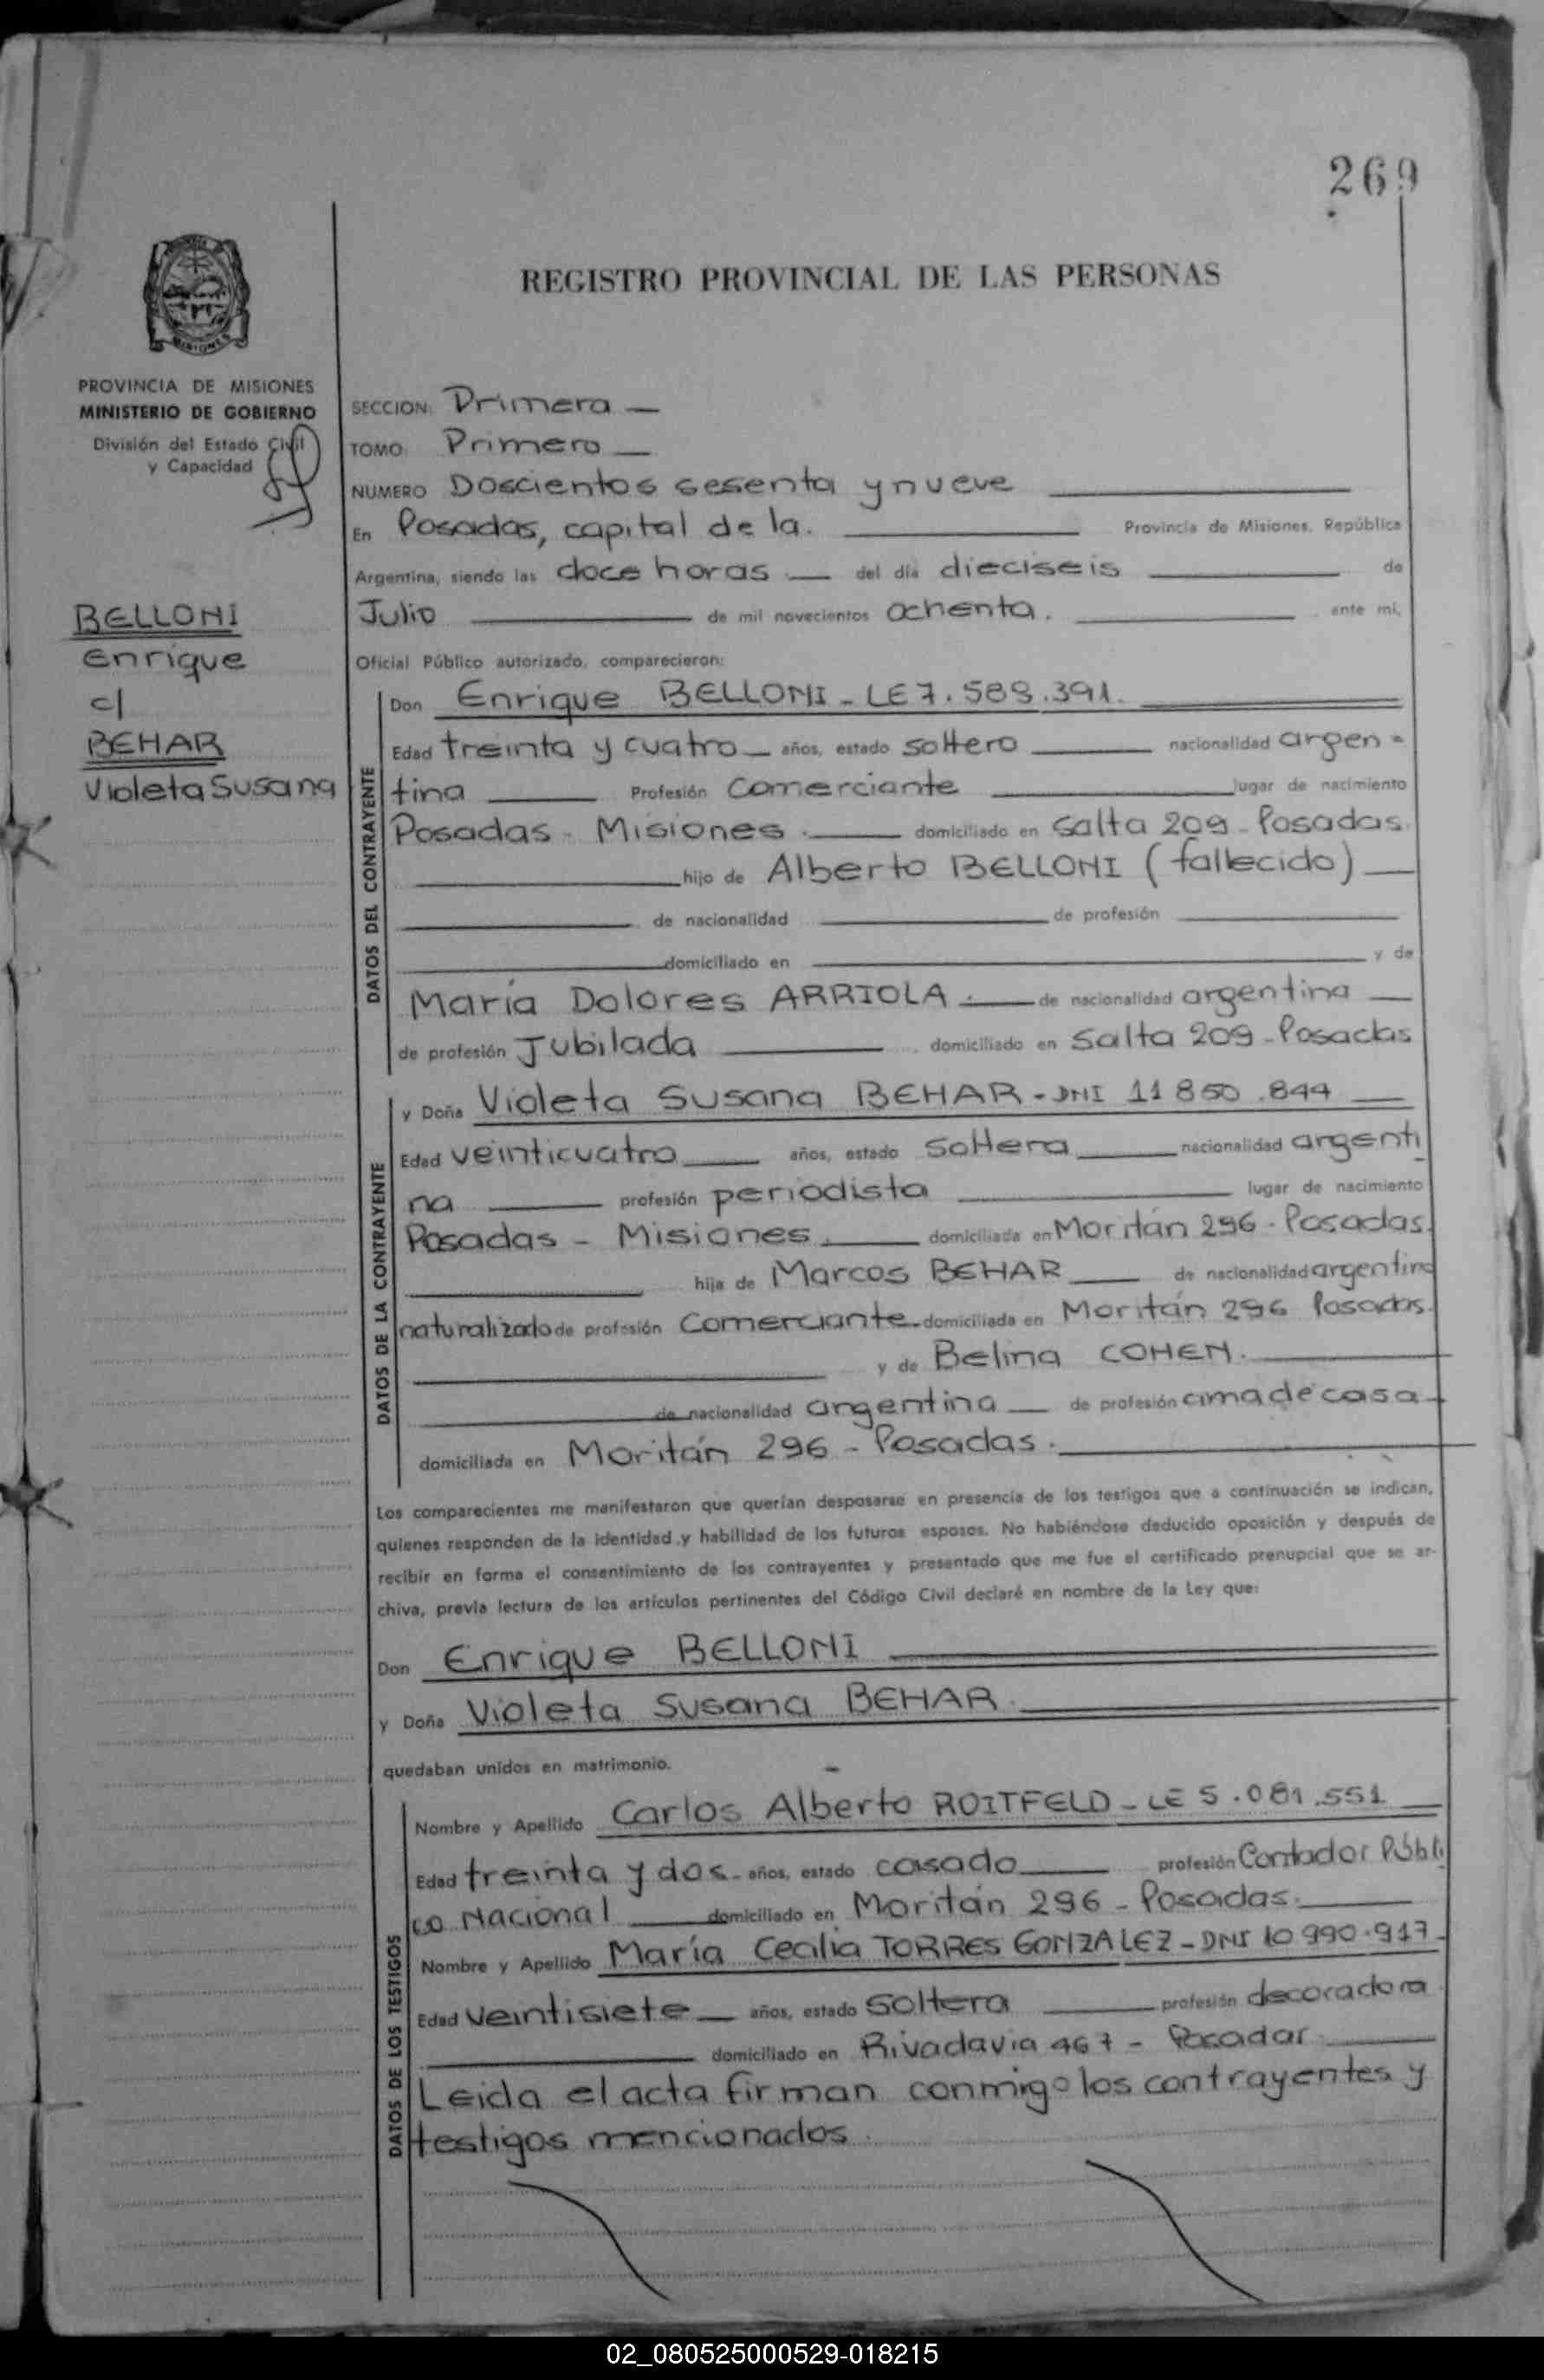 269
REGISTRO PROVINCIAL DE LAS PERSONAS
MISIONES
PROVINCIA DE MISIONES
MINISTERIO DE GOBIERNO
División del Estado Civil
y Capacidad
BELLONI
Enrique
c/
BEHAR
Violeta Susana
SECCION: Primera —
TOMO: Primero —
NUMERO Doscientos sesenta y nueve
En Posadas, capital de la. Provincia de Misiones, República
Argentina, siendo las doce horas — del día dieciseis de
Julio de mil novecientos ochenta. ante mi,
Oficial Público autorizado, comparecieron:
DATOS DEL CONTRAYENTE
Don Enrique BELLONI - LE 7.589.391.
Edad treinta y cuatro — años, estado soltero nacionalidad argen=
tina Profesión Comerciante lugar de nacimiento
Posadas - Misiones. domiciliado en Salta 209 - Posadas.
hijo de Alberto BELLONI (fallecido)
de nacionalidad de profesión
domiciliado en y de
María Dolores ARRIOLA. de nacionalidad argentina
de profesión Jubilada domiciliado en Salta 209 - Posadas
DATOS DE LA CONTRAYENTE
y Doña Violeta Susana BEHAR - DNI 11 850.844
Edad veinticuatro años, estado Soltera nacionalidad argenti
na profesión periodista lugar de nacimiento
Posadas - Misiones. domiciliada en Moritán 296 - Posadas.
hija de Marcos BEHAR de nacionalidad argentino
naturalizado de profesión Comerciante domiciliada en Moritán 296 Posadas.
y de Belina COHEN.
de nacionalidad argentina de profesión ama de casa
domiciliada en Moritán 296 - Posadas.
Los comparecientes me manifestaron que querían desposarse en presencia de los testigos que a continuación se indican,
quienes responden de la identidad y habilidad de los futuros esposos. No habiéndose deducido oposición y después de
recibir en forma el consentimiento de los contrayentes y presentado que me fue el certificado prenupcial que se ar-
chiva, previa lectura de los artículos pertinentes del Código Civil declaré en nombre de la Ley que:
Don Enrique BELLONI
y Doña Violeta Susana BEHAR.
quedaban unidos en matrimonio.
DATOS DE LOS TESTIGOS
Nombre y Apellido Carlos Alberto ROITFELD - LE 5.081.551
Edad treinta y dos - años, estado casado profesión Contador Públi
co Nacional domiciliado en Moritán 296 - Posadas.
Nombre y Apellido María Cecilia TORRES GONZALEZ - DNI 10 990.917
Edad veintisiete años, estado Soltera profesión decoradora
domiciliado en Rivadavia 467 - Posadas.
Leida el acta firman conmigo los contrayentes y
testigos mencionados.
02_080525000529-018215